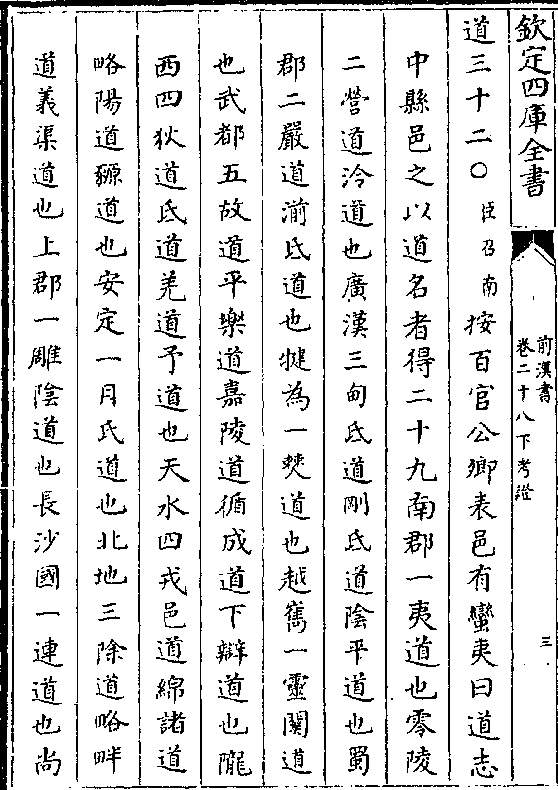 欽定四庫全書
前漢書
卷二十八下考證
三
道三十二○臣召南按百官公卿表邑有蠻夷曰道志
中縣邑之以道名者得二十九南郡一夷道也零陵
二營道泠道也廣漢三甸氐道剛氐道陰平道也蜀
郡二嚴道湔氐道也犍為一僰道也越嶲一靈關道
也武都五故道平樂道嘉陵道循成道下辯道也隴
西四狄道氐道羌道予道也天水四戎邑道綿諸道
略陽道豲道也安定一月氏道也北地三除道略畔
道義渠道也上郡一雕陰道也長沙國一連道也尚